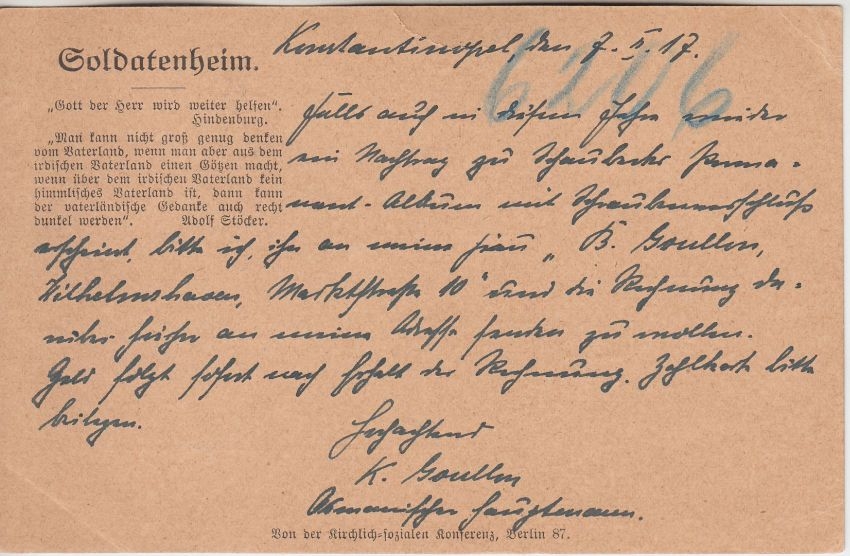 Soldatenheim.
„Gott der Herr wird weiter helfen“.
Hindenburg.
„Man kann nicht groß genug denken
vom Vaterland, wenn man aber aus dem
irdischen Vaterland einen Götzen macht,
wenn über dem irdischen Vaterland kein
himmlisches Vaterland ist, dann kann
der vaterländische Gedanke auch recht
dunkel werden“. Adolf Stöcker.
Konstantinopel, den 7. II. 17.
6206
Falls auch in diesem Jahre wieder
ein Nachtrag zu Schaubecks Perma-
nent-Album mit Schraubenverschluß
erscheint, bitte ich, ihn an meine Frau „B. Goullon,
Wilhelmshaven, Marktstraße 10“ und die Rechnung da-
rüber hierher an meine Adresse senden zu wollen.
Geld folgt sofort nach Erhalt der Rechnung. Zahlkarte bitte
beilegen.
Hochachtend
K. Goullon
Osmanischer Hauptmann.
Von der Kirchlich-sozialen Konferenz, Berlin 87.